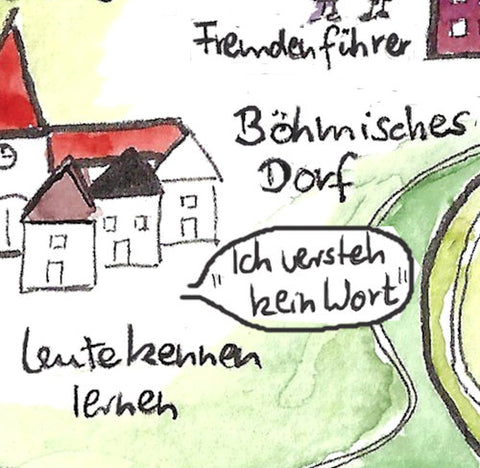 Fremdenführer
Böhmisches
Dorf
"Ich versteh
kein Wort"
Leute kennen
lernen